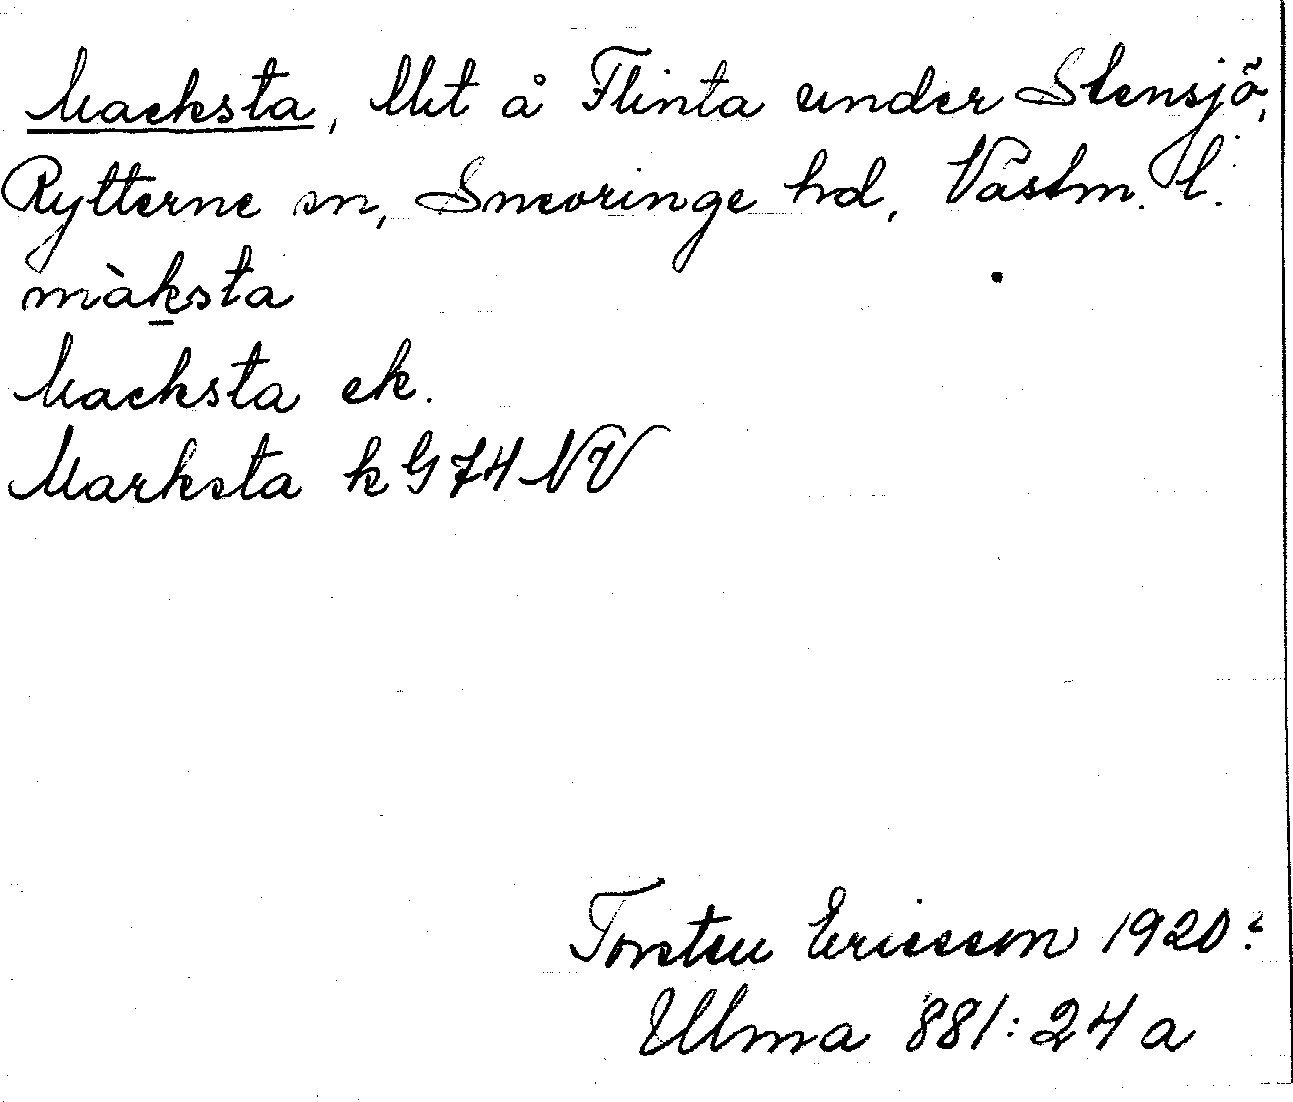 Macksta, Mt å Flinta under Stensjö,
Rytterne sn, Snevringe hd, Västm. l.
màksta
Macksta ek.
Marksta kG74NV
Torsten Ericsson 1920?
Ulma 881:24a